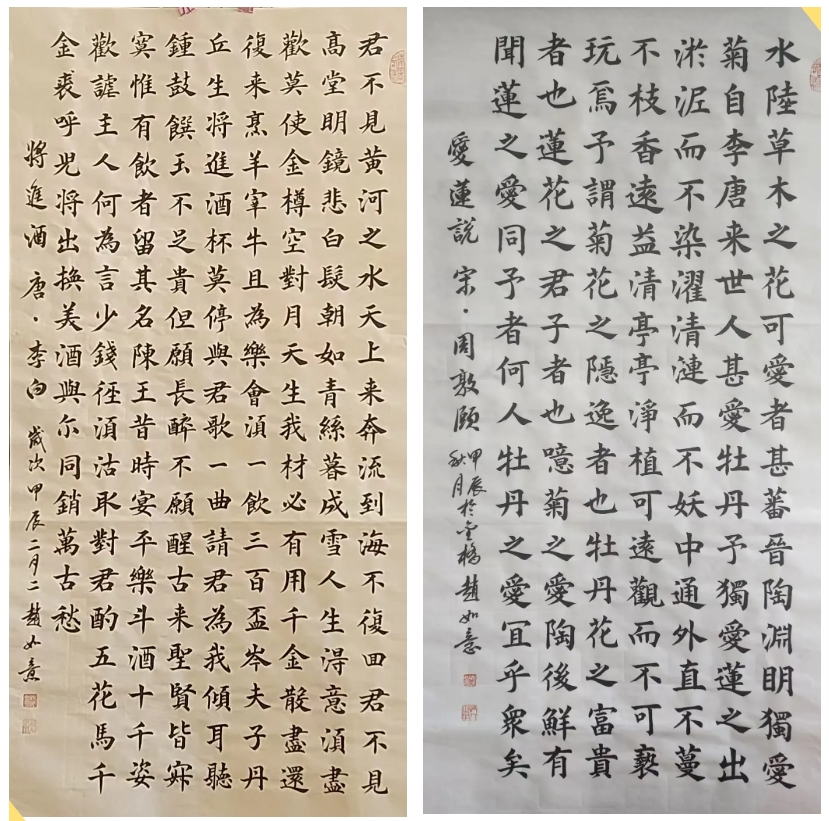 君不見黄河之水天上来奔流到海不復回君不見
高堂明鏡悲白髮朝如青絲暮成雪人生得意須盡
歡莫使金樽空對月天生我材必有用千金散盡還
復来烹羊宰牛且為樂會須一飲三百盃岑夫子丹
丘生将進酒杯莫停與君歌一曲請君為我傾耳聽
鍾鼓饌玉不足貴但願長醉不願醒古来聖賢皆寂
寞惟有飲者留其名陳王昔時宴平樂斗酒十千姿
歡謔主人何為言少錢徑須沽取對君酌五花馬千
金裘呼兒将出換美酒與尔同銷萬古愁
将進酒 唐·李白 歲次甲辰二月二趙如意
水陸草木之花可愛者甚蕃晉陶淵明獨愛
菊自李唐来世人甚愛牡丹予獨愛蓮之出
淤泥而不染濯清漣而不妖中通外直不蔓
不枝香遠益清亭亭淨植可遠觀而不可褻
玩焉予謂菊花之隱逸者也牡丹花之富貴
者也蓮花之君子者也噫菊之愛陶後鮮有
聞蓮之愛同予者何人牡丹之愛宜乎衆矣
愛蓮說 宋·周敦頤
甲辰
秋月於金橋趙如意